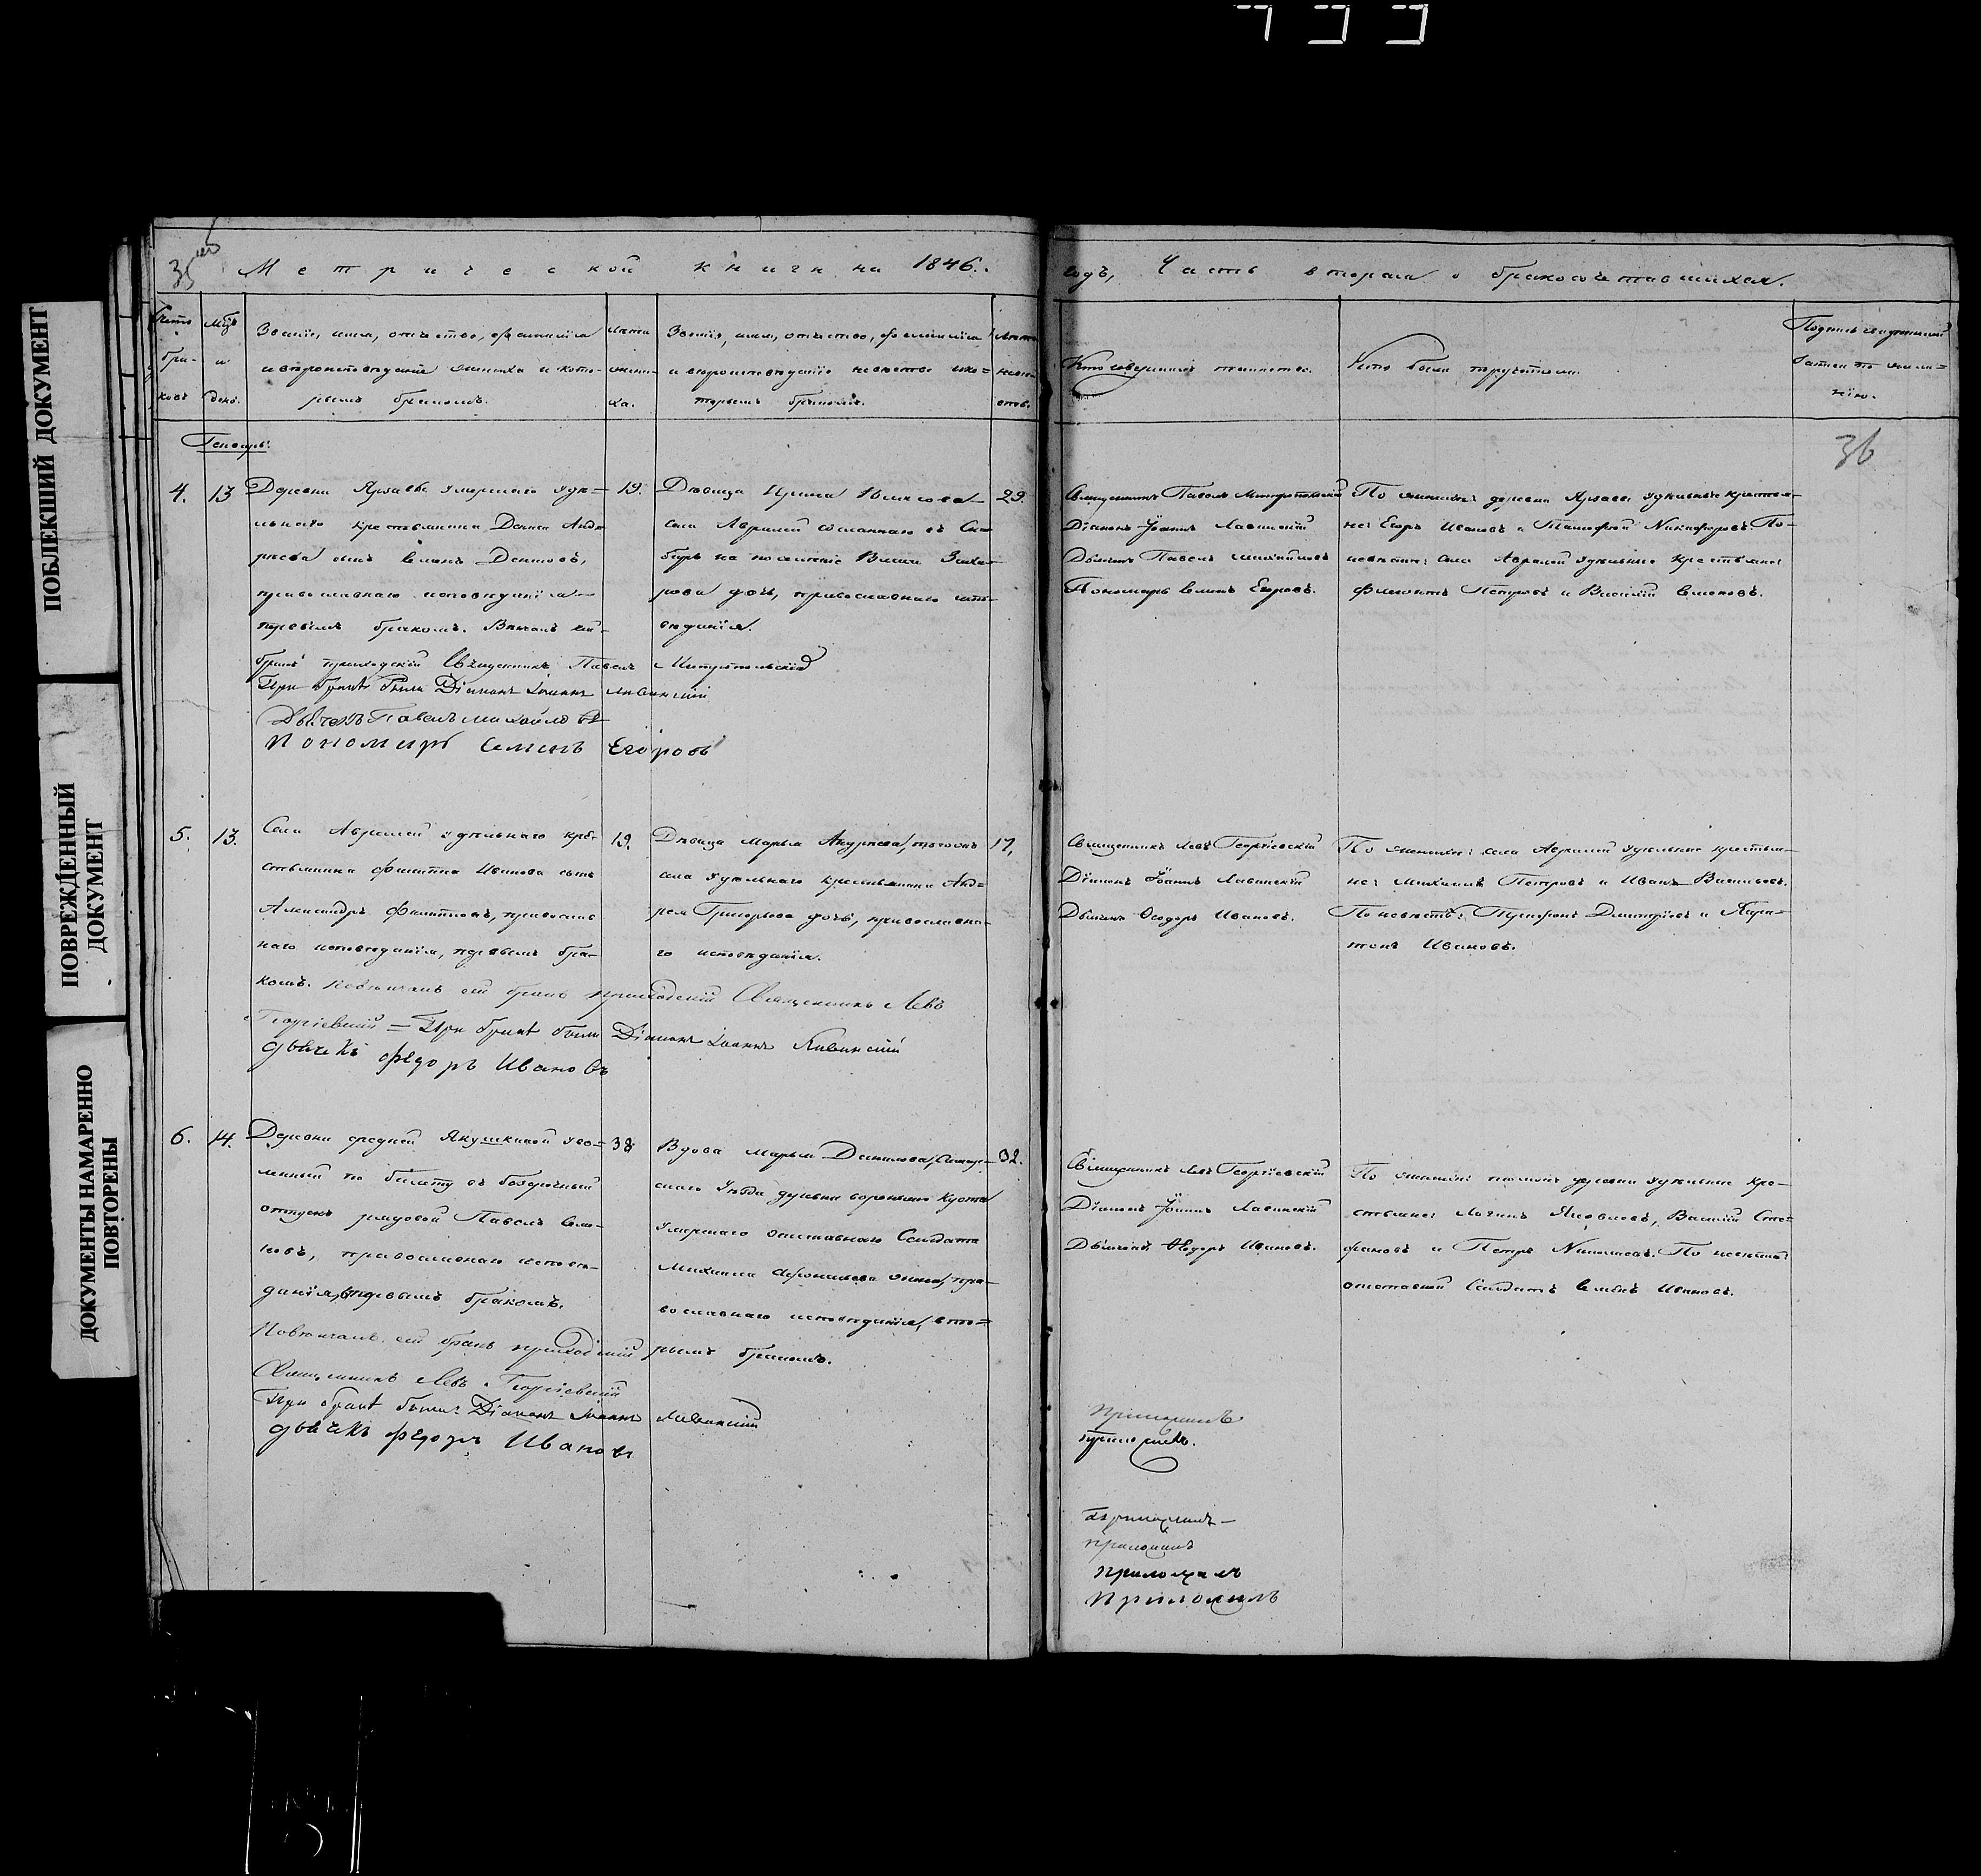 ПОБЛЕКШИЙ ДОКУМЕНТ
ПОВРЕЖДЕННЫЙ
ДОКУМЕНТ
ДОКУМЕНТЫ НАМАРЕННО
ПОВТОРЕНЫ
35
Метрической книги на 1846.
годъ, Часть вторая о бракосочетавшихся.
Счетъ
бра-
ковъ
Мѣц
и
день.
Званіе, имя, отчество, фамилія
и вѣроисповѣданіе жениха и кото-
рымъ бракомъ.
Лѣта
жени-
ха.
Званіе, имя, отчество, фамилія
и вѣроисповѣданіе невѣсты и ко-
торымъ бракомъ.
Лѣта
невѣ-
сты.
Кто совершалъ таинство.
Кто были поручители.
Подпись свидѣтелей
записи по жела-
нію.
Генварь:
36
4. 13
Деревни Ярзавы умершаго удѣ-
льнаго крестьянина Дениса Анд-
реева сынъ Семенъ Денисовъ,
православнаго исповѣданія
первымъ бракомъ. Вѣнчалъ сей
бракъ приходскій Священникъ Павелъ Митропольскій
При бракѣ были Діаконъ Іоаннъ Лавинскій
Дьячекъ Павелъ Михайловъ
Пономарь Семенъ Егоровъ
19.
Дѣвица Ирина Власова
села Аврамей сосланнаго въ Си-
бирь на поселеніе Власа Заха-
рова дочь, православнаго испо-
вѣданія.
29.
Священникъ Павелъ Митропольскій
Діаконъ Іоаннъ Лавинскій
Дьячекъ Павелъ Михайловъ
Пономарь Семенъ Егоровъ.
По женихѣ: деревни Ярзавы удѣльные крестья-
не: Егоръ Ивановъ и Тимофей Никифоровъ. По
невѣстѣ: села Аврамей удѣльные крестьяне:
Филиппъ Петровъ и Василій Семеновъ.
5. 13.
Села Аврамей удѣльнаго кре-
стьянина Филиппа Иванова сынъ
Александръ Филипповъ, православ-
наго исповѣданія, первымъ бра-
комъ. Повѣнчалъ сей бракъ приходскій Священникъ Левъ
Георгіевскій = При бракѣ были Діаконъ Іоаннъ Лавинскій
дьячекъ Федоръ Ивановъ
19.
Дѣвица Марья Андреева, тогожъ
села удѣльнаго крестьянина Анд-
рея Григорьева дочь, православна-
го исповѣданія.
17.
Священникъ Левъ Георгіевскій
Діаконъ Іоаннъ Лавинскій
Дьячекъ Ѳеодоръ Ивановъ.
По женихѣ: села Аврамей удѣльные крестья-
не: Михаилъ Петровъ и Иванъ Васильевъ.
По невѣстѣ: Дмитріевъ и Хари-
тонъ Ивановъ.
6. 14.
Деревни средней Якушкиной уво-
ленный по билету въ безсрочный
отпускъ рядовой Павелъ Семе-
новъ, православнаго исповѣ-
данія, первымъ бракомъ.
Повѣнчалъ сей бракъ приходскій
Священникъ Левъ Георгіевскій
При бракѣ были: Діаконъ Іоаннъ Лавинскій
дьячекъ Федоръ Ивановъ
38
Вдова Марья Данилова, Самар-
скаго уѣзда деревни вороньяго куста
умершаго отставнаго Солдата
Михаила Афонасьева жена, пра-
вославнаго исповѣданія, вто-
рымъ бракомъ.
32.
Священникъ Левъ Георгіевскій
Діаконъ Іоаннъ Лавинскій
Дьячекъ Ѳеодоръ Ивановъ.
По женихѣ: тойже деревни удѣльные кре-
стьяне: Логинъ Яковлевъ, Василій Сте-
фановъ и Петръ Николаевъ. По невѣстѣ:
отставной Солдатъ Семенъ Ивановъ.
приложилъ
приложилъ.
приложилъ
приложилъ
приложилъ
приложилъ